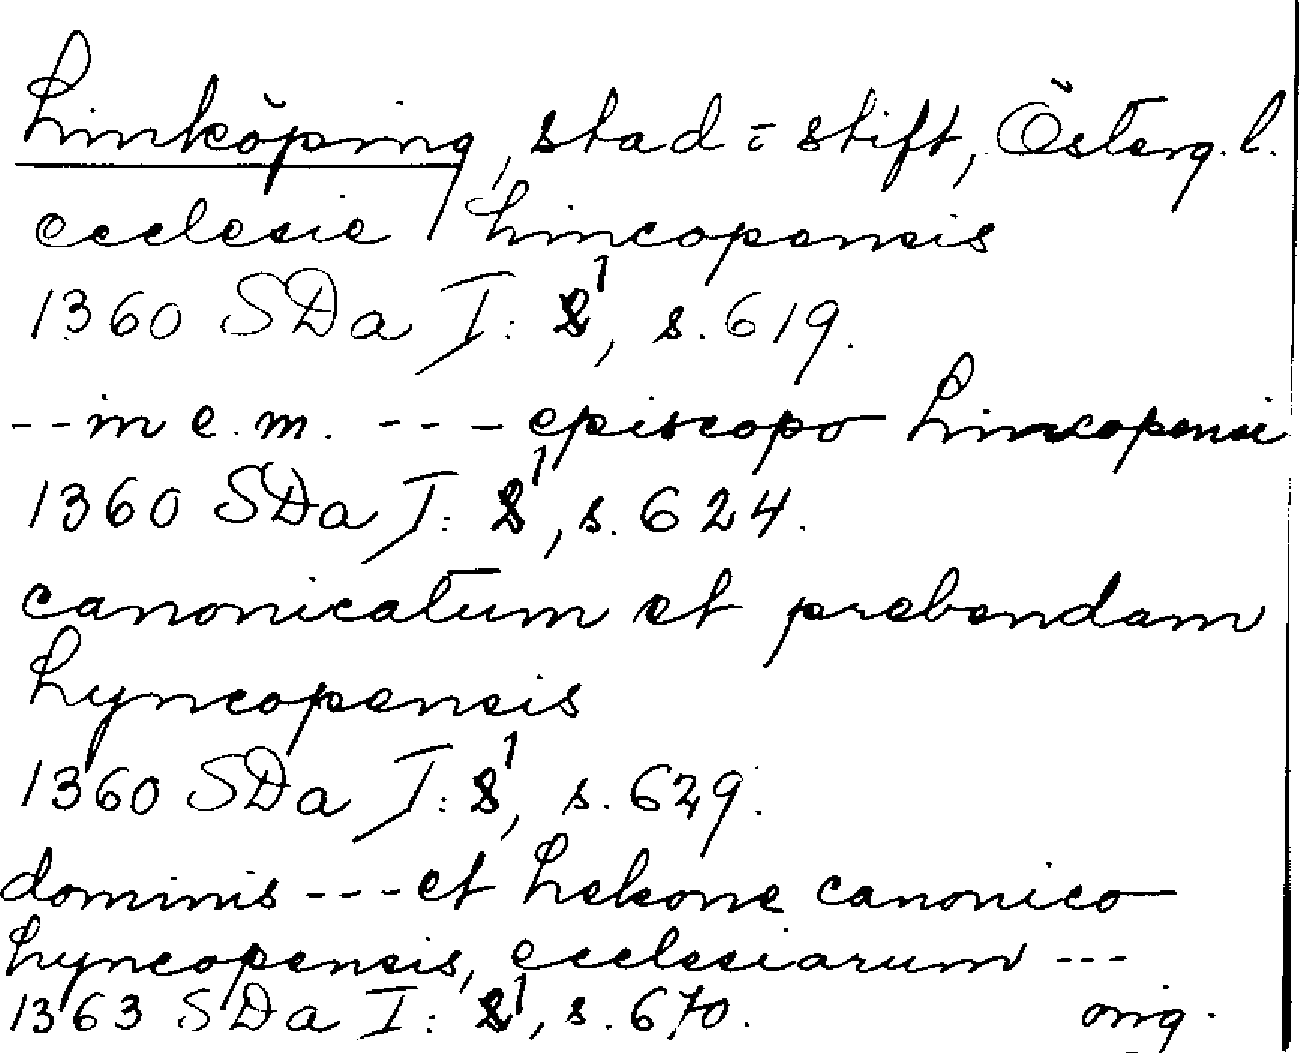 Linköping, stad = stift, Österg. l.
ecclesie Lincopensis
1360 SDa I: 1, s. 619.
--in c. m. --- episcopo Lincopensi
1360 SDa I: 1, s. 624.
canonicatum et prebendam
Lyncopensis
1360 SDa I: 1, s. 629.
dominis --- et hakone canonico
Lyncopensis, ecclesiarum ---
1363 SDa I: 1, s. 670. orig.